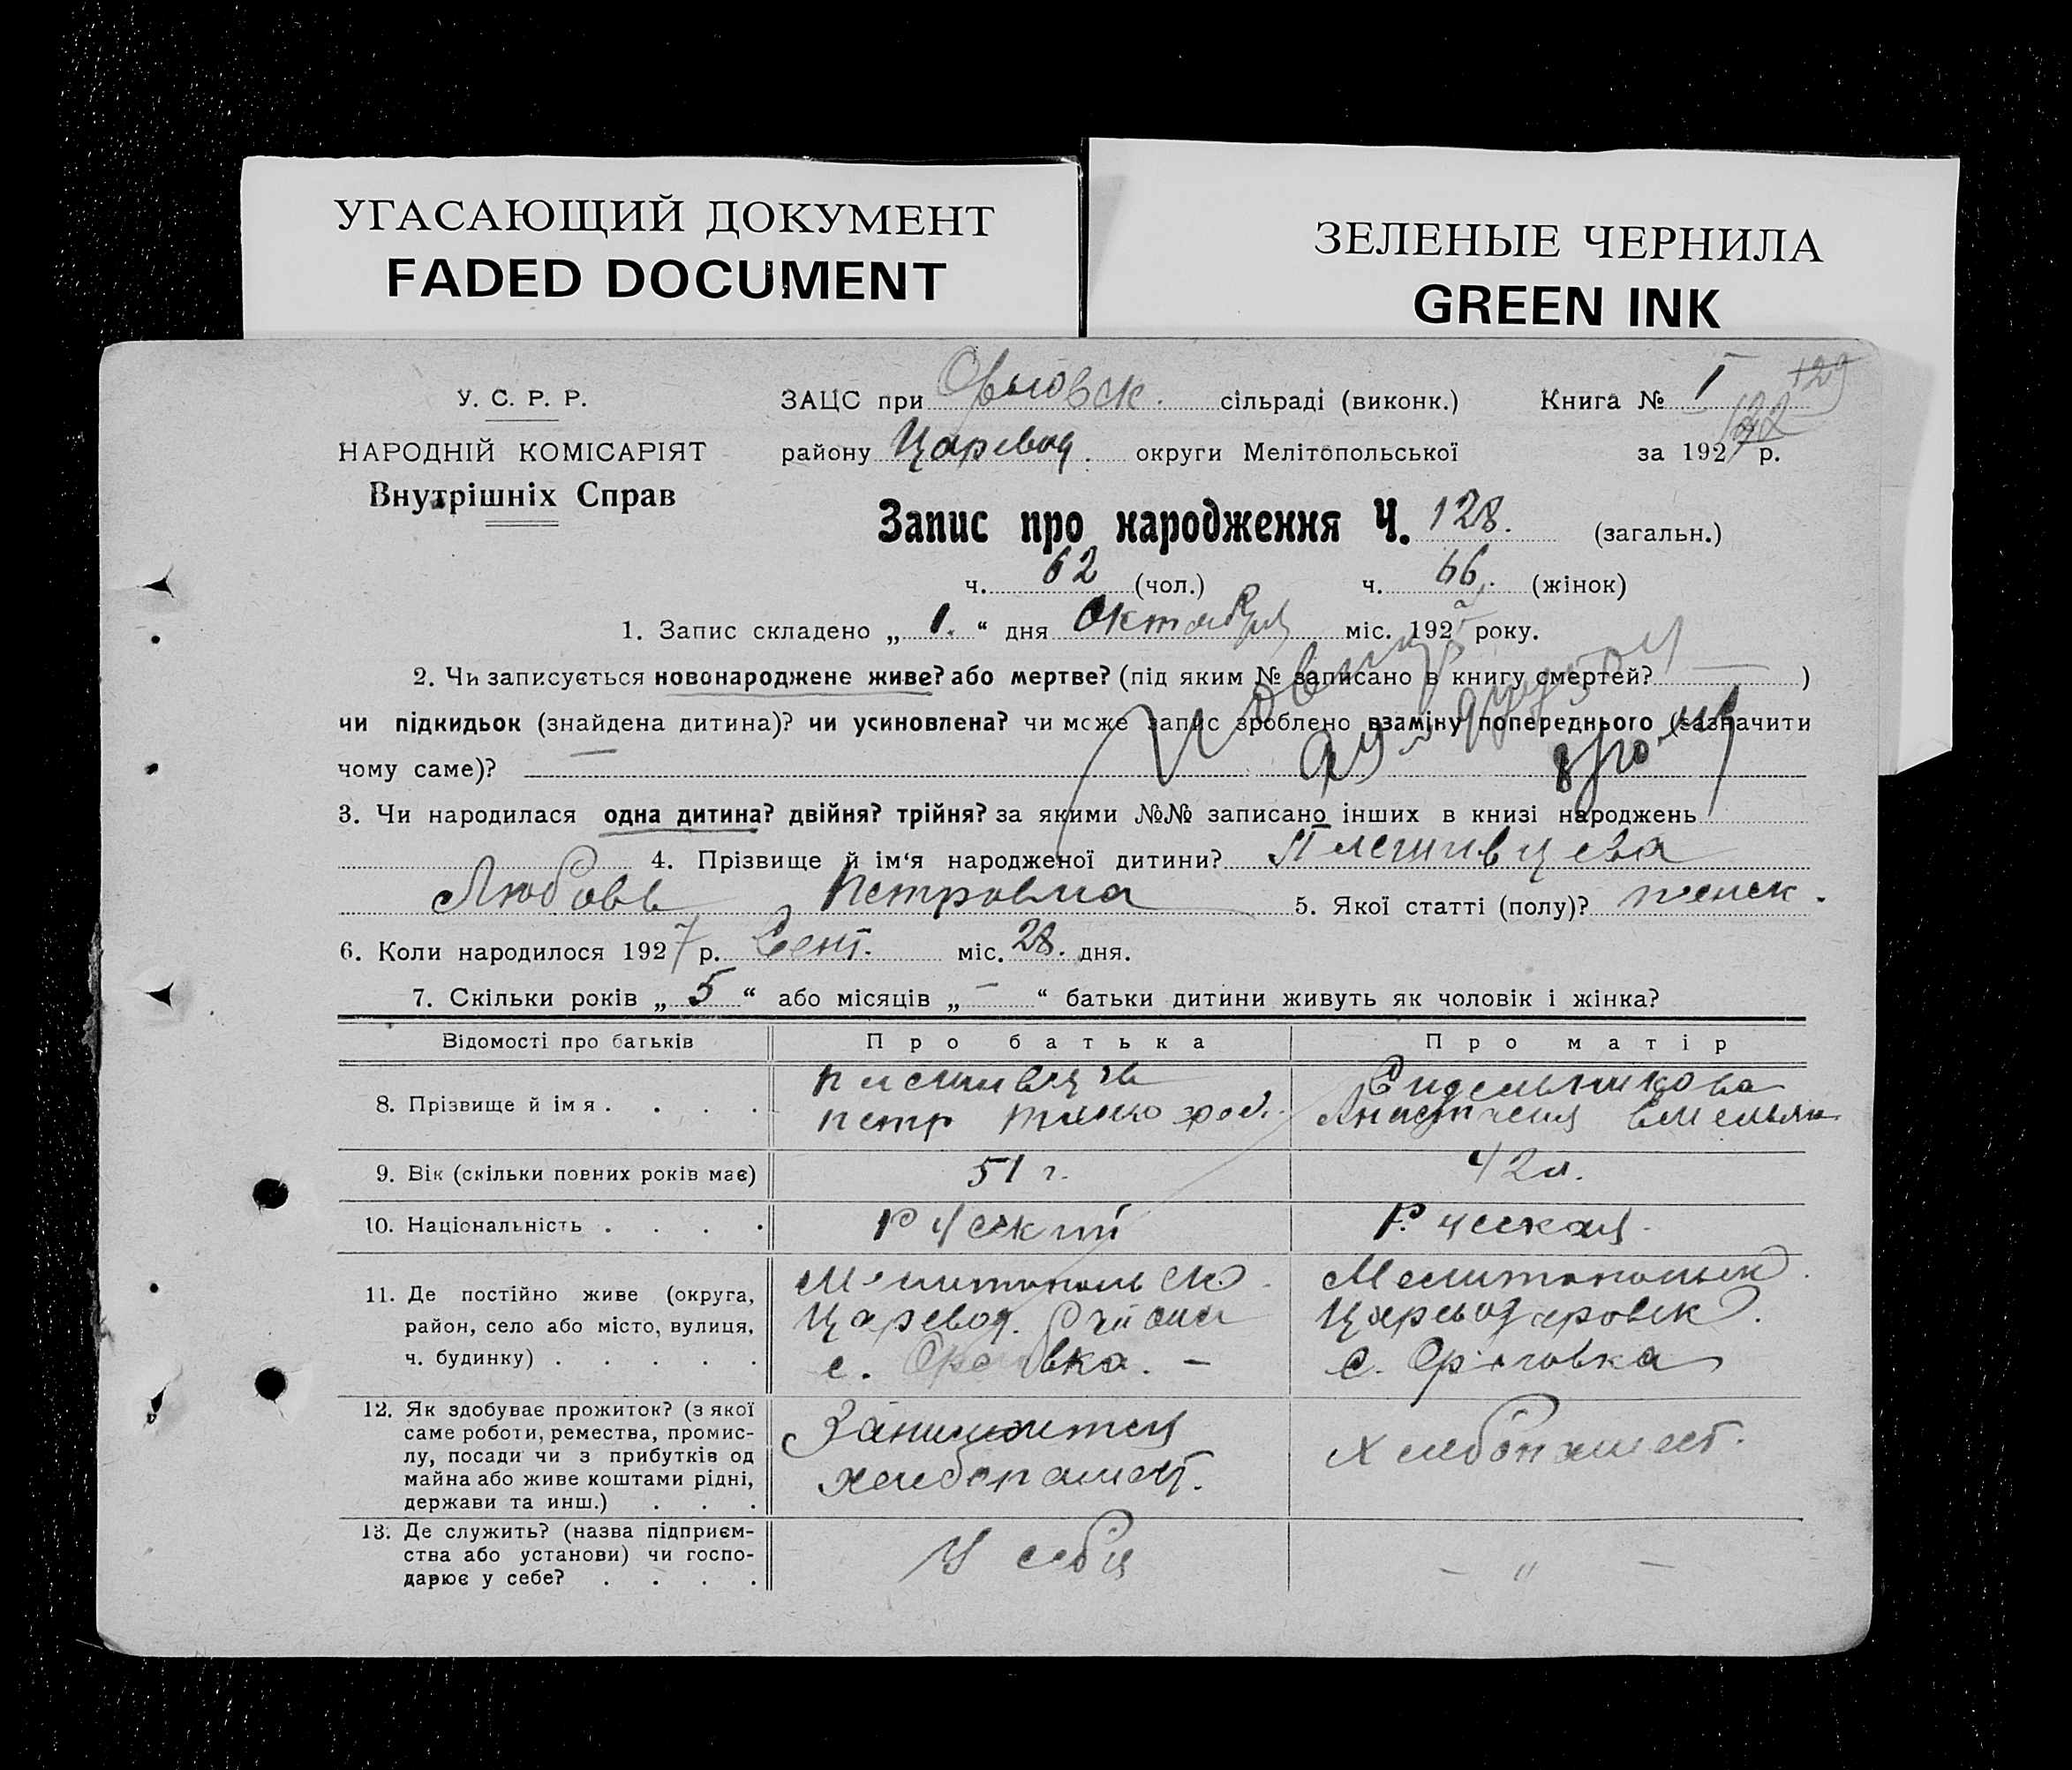 УГАСАЮЩИЙ ДОКУМЕНТ
FADED DOCUMENT
ЗЕЛЕНЫЕ ЧЕРНИЛА
GREEN INK
У. С. Р. Р.
НАРОДНІЙ КОМІСАРІЯТ
Внутрішніх Справ
ЗАЦС при сільраді (виконк.) Книга № I
129
122
району Царевод. округи Мелітопольської за 1927 р.
Запис про народження Ч. 128. (загальн.)
ч. 62 (чол.) ч. 66. (жінок)
1. Запис складено „ 1. “ дня Октября міс. 1927 року.
2. Чи записується новонароджене живе? або мертве? (під яким № записано в книгу смертей? — )
чи підкидьок (знайдена дитина)? чи усиновлена? чи може запис зроблено взаміну попереднього (зазначити
чому саме)? —
3. Чи народилася одна дитина? двійня? трійня? за якими №№ записано інших в книзі народжень
4. Прізвище й ім‘я народженої дитини? Плешивцева
Любовь Петровна 5. Якої статті (полу)? женск.
6. Коли народилося 1927 р. Сент. міс. 28. дня.
7. Скільки років „ 5 “ або місяців „ — “ батьки дитини живуть як чоловік і жінка?
Відомості про батьків Про батька Про матір
8. Прізвище й імя . . . . Плешивцев Сидельникова
Петр Тимофеев. Анастасия Емельян
9. Вік (скільки повних років має) 51 г. 42 л.
10. Національність . . . . Руский Русская.
11. Де постійно живе (округа, район, село або місто, вулиця, ч. будинку) . . . . .
Мелитопольск. Мелитопольск.
Царевод. Района Царьводаровск.
с. вка. — с.
12. Як здобуває прожиток? (з якої саме роботи, ремества, промислу, посади чи з прибутків од майна або живе коштами рідні, держави та инш.) . . .
Занимается Хлебопашест.
хлебопашест.
13. Де служить? (назва підприємства або установи) чи господарює у себе? . . . .
У себя — " —